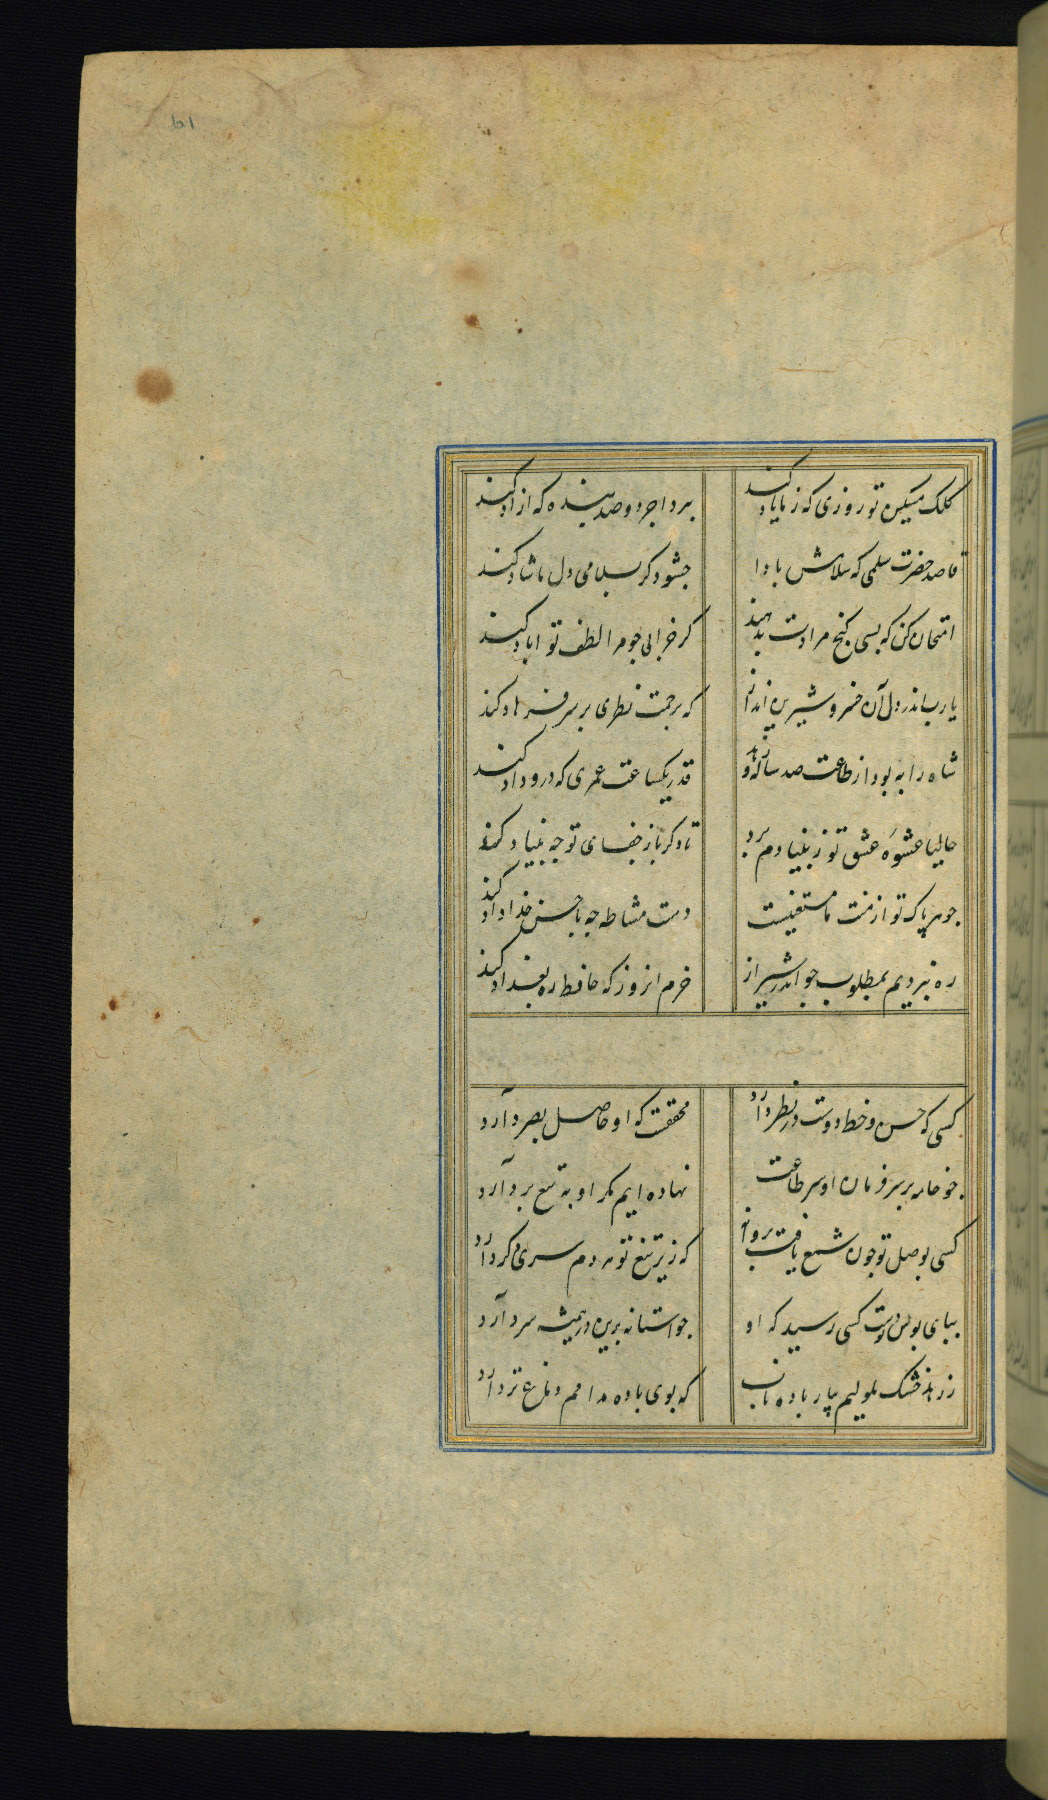 61
کلک مشکین تو روزی که ز ما یاد کند	ببرد اجر دو صد بنده که ازاد کند
قاصد حضرت سلمی که سلامش بادا	جشود کر بسلامی دل ما شاد کند
امتحان کن که بسی کنج مرادت بدهند	کر خرابی جو مرا لطف تو اباد کند
یا رب اندر دل آن خسرو شیرین انداز	که برحمت نظری بر سر فرهاد کند
شاه را به بود از طاعت صد ساله و زهد	قدر یکساعت عمری که درو داد کند
حالیا عشوهٔ عشق تو ز بنیادم برد	تا دکر باز جفای تو جه بنیاد کند
جوهر پاک تو از منت ما مستغنیست	دست مشاطه جه با حسن خداداد کند
ره نبردیم بمطلوب جو اندر شیراز	خرم انروز که حافظ ره بغداد کند
کسی که حسن و خط دوست در نظر دارد	محققست که او حاصل بصر دارد
جو خامه بر سر فرمان او سر طاعت	نهاده ایم مکر او به تیغ بردارد
کسی بوصل تو جون شمع یافت پروانه	که زیر تیغ تو هر دم سری دکر دارد
بپای بوس دوست کسی رسید که او	جو استانه برین در همیشه سر دارد
ز زهد خشک ملولیم بیار باده ناب	که بوی باده مدامم دماغ تر دارد